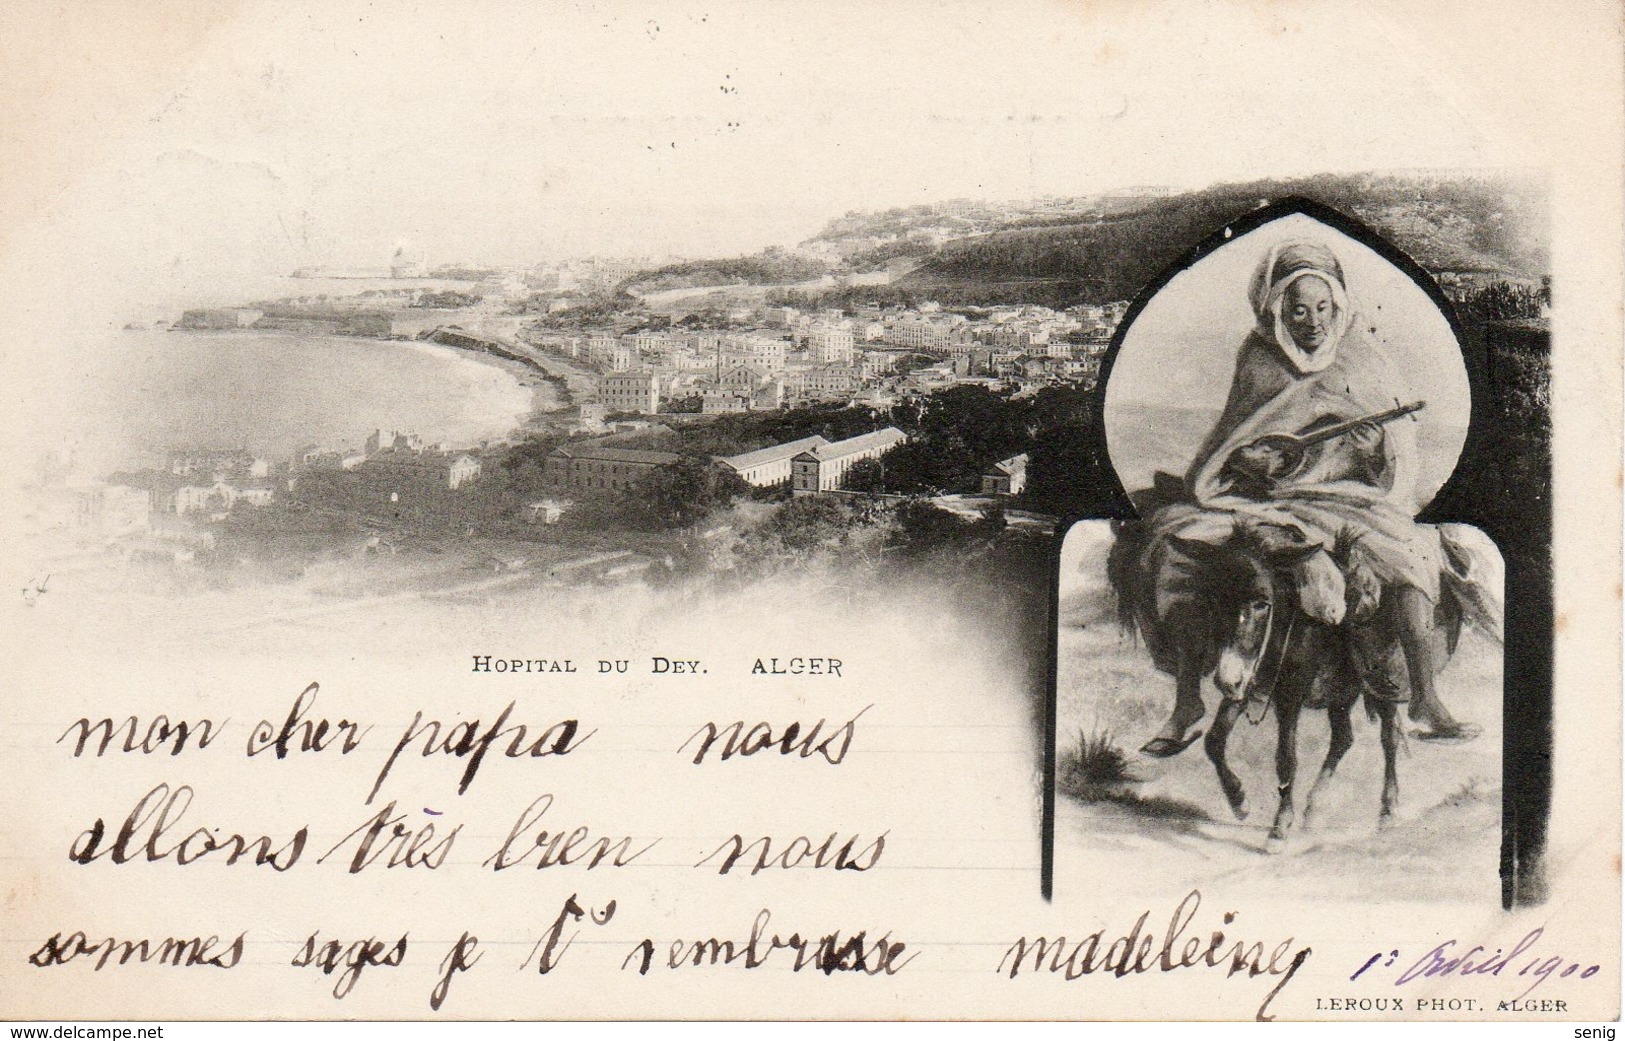 HOPITAL DU DEY. ALGER
mon cher papa nous
allons très bien nous
sommes sages je t' rembrasse madeleine
1er Avril 1900
LEROUX PHOT. ALGER
www.delcampe.net
senig